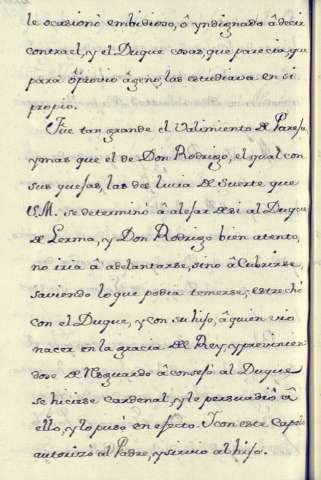 le ocasionó embidioso, ô yndignado â decir
contra el, y el Duque cosas, que parecia, que
para oprovio ageno, las estudiava en si
propio.
Fue tan grande el Valimiento de
y mas que el de Don Rodrigo, el qual con
sus quejas, las de suerte que
S.M. se determinó â alejar de si al Duque
de Lerma, y Don Rodrigo bien atento,
no iria â adelantarse, sino â Cubrirse,
saviendo lo que podia temerse; estrechó
con el Duque, y con su hijo, â quien vio
nacer en la gracia del Rey, y previnien
dose de Resguardo âconsejó al Duque
se hiciese Cardenal, y le persuadió â
ello, y lo puso en efecto. Y con este Capelo
autorizó al Padre, y sirvio al hijo.